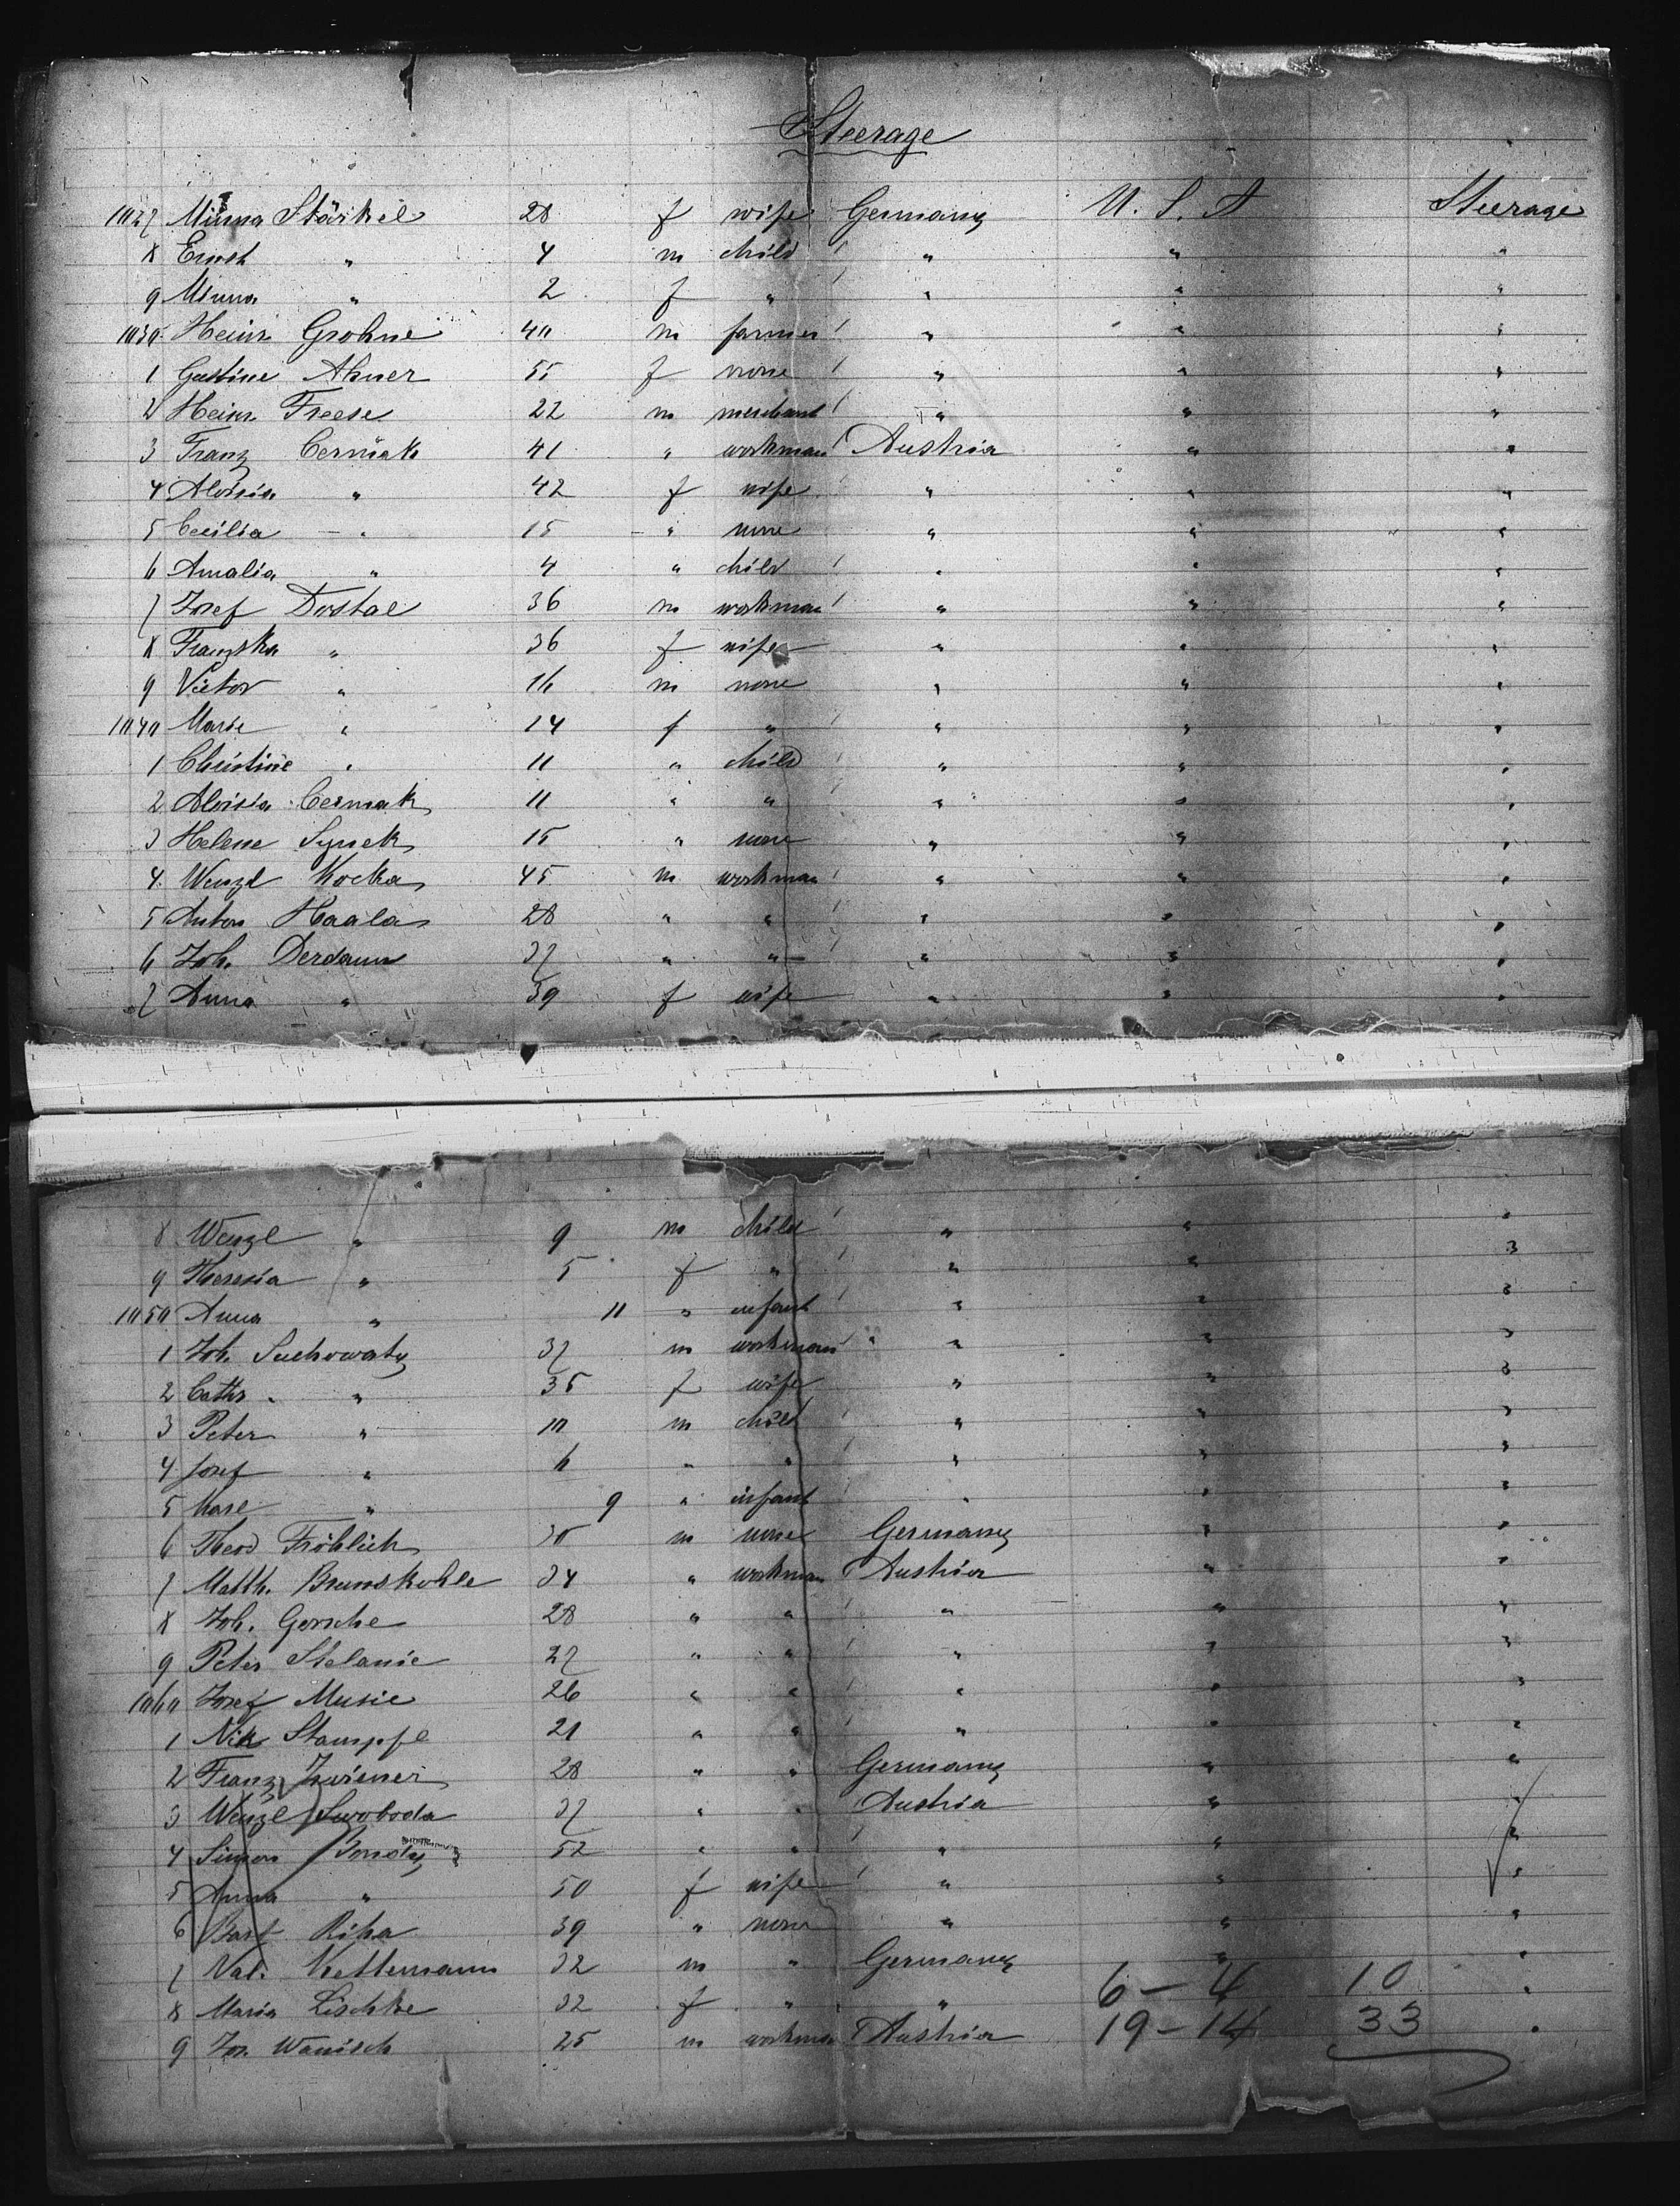 Steerage
1027 Minna Stärkel 28 f wife Germany U. S. A Steerage
8 Ernst " 4 m child " " "
9 Minna " 2 f " " " "
1030 Heinr. Grohne 40 m farmer " " "
1 Gustine Ahner 55 f none " " "
2 Heinr. Freese 22 m merchant " " "
3 Franz Cermak 41 " workman Austria " "
4 Aloisia " 42 f wife " " "
5 Cecilia " 15 " none " " "
6 Amalia " 4 " child " " "
7 Josef Dostal 36 m workman " " "
8 Franziska " 36 f wife " " "
9 Victor " 16 m none " " "
1040 Marie " 14 f " " " "
1 Christine " 11 " child " " "
2 Aloisia Cermak 11 " " " " "
3 Helene Synek 15 " none " " "
4 Wenzl Kocka 45 m workman " " "
5 Anton Haala 28 " " " " "
6 Joh. Derdaun 37 " " " " "
7 Anna " 39 f wife " " "
8 Wenzl " 9 m child " " "
9 Theresia " 5 f " " " "
1050 Anna " 11 " infant " " "
1 Joh. Suchowaty 37 m workman " " "
2 Cathr. " 35 f wife " " "
3 Peter " 10 m child " " "
4 Josef " 6 " " " " "
5 Karl " 9 " infant " " "
6 Theod Fröhlich 30 m none Germany " "
7 Matth. Brunskohle 34 " workman Austria " "
8 Joh. Gorsche 28 " " " " "
9 Peter Stelanic 27 " " " " "
1060 Josef Music 26 " " " " "
1 Nik Stampfl 21 " " " " "
2 Franz Zwiener 28 " " Germany " "
3 Wenzl Swoboda 37 " " Austria " "
4 Simon Bondy 52 " " " " "
5 Anna " 50 f wife " " "
6 Riha 39 " none " " "
7 Val. Kettemann 32 m " Germany " "
8 Maria Lischke 32 f " " 6 - 4 10 "
9 Jos. Wanisch 25 m workman Austria 19 - 14 33 "